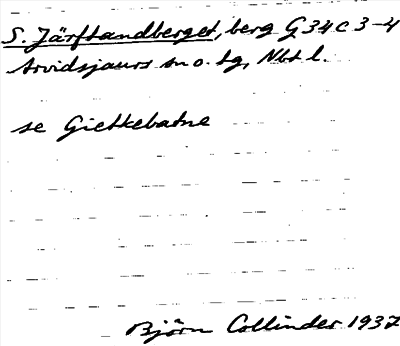 S. Järftandberget, berg G 34 c 3-4
Arvidsjaurs sn o. tg, Nbt l.
se Gietkebatne
Björn Collinder 1937